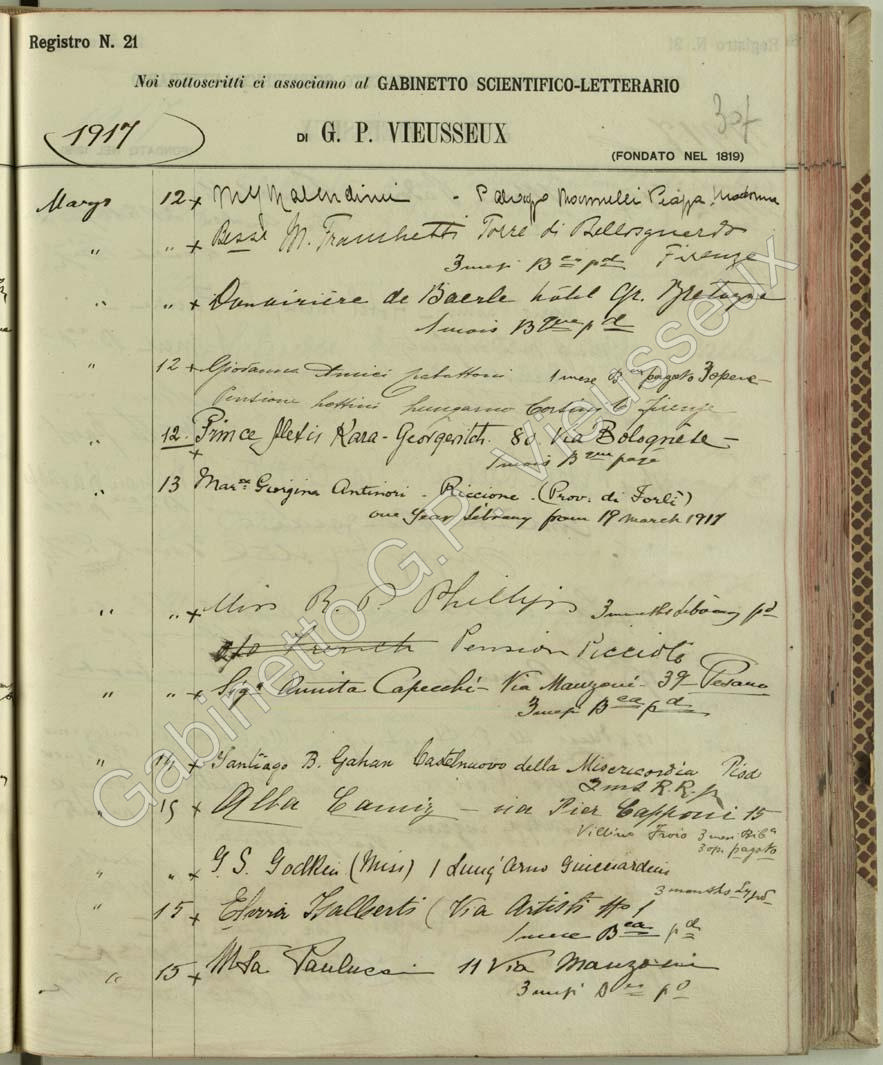 Registro N. 21
Noi sottoscritti ci associamo al GABINETTO SCIENTIFICO-LETTERARIO
307
1917
DI G. P. VIEUSSEUX
(FONDATO NEL 1819)
Marzo 12 x - Palazzo Piazza Madonna
" " x M. Franchetti Torre di Bellosguardo
3 mesi Bca pd Firenze
" " x Douairière de Baerle hôtel Gr. Bretagne
1 mois Bque pd
" 12 x Giovanna Amici 1 mese pagato 3 opere
Pensione Lungarno Corsini Firenze
" 12. x Prince Alexis Kara-Georgevitch. 80 Via Bolognese
1 mois Bque payé
" 13 Georgina Antinori - Riccione - (Prov. di Forlì)
one year Library from 19 march 1917
" " x Miss R. P. Phillips 3 months Library pd
c/o French Pension Piccioli
" " x Siga Annita Capecchi - Via Manzoni - 39 Pesaro
3 mesi Bca pd
" 14 x Santiago B. Gahan Castelnuovo della Misericordia Pisa
3 ms R.R. p
" 15 x Alba - via Pier Capponi 15
Villino 3 mesi
3 op. pagato
" " x G. S. Godkin (Miss) 1 Lung'Arno Guicciardini
3 months Ly pd
" 15 x (Via Artisti No 1
1 mese Bca pd
" 15 x Paulucci 11 Via Manzoni
3 mesi pd
Gabinetto G.P. Vieusseux